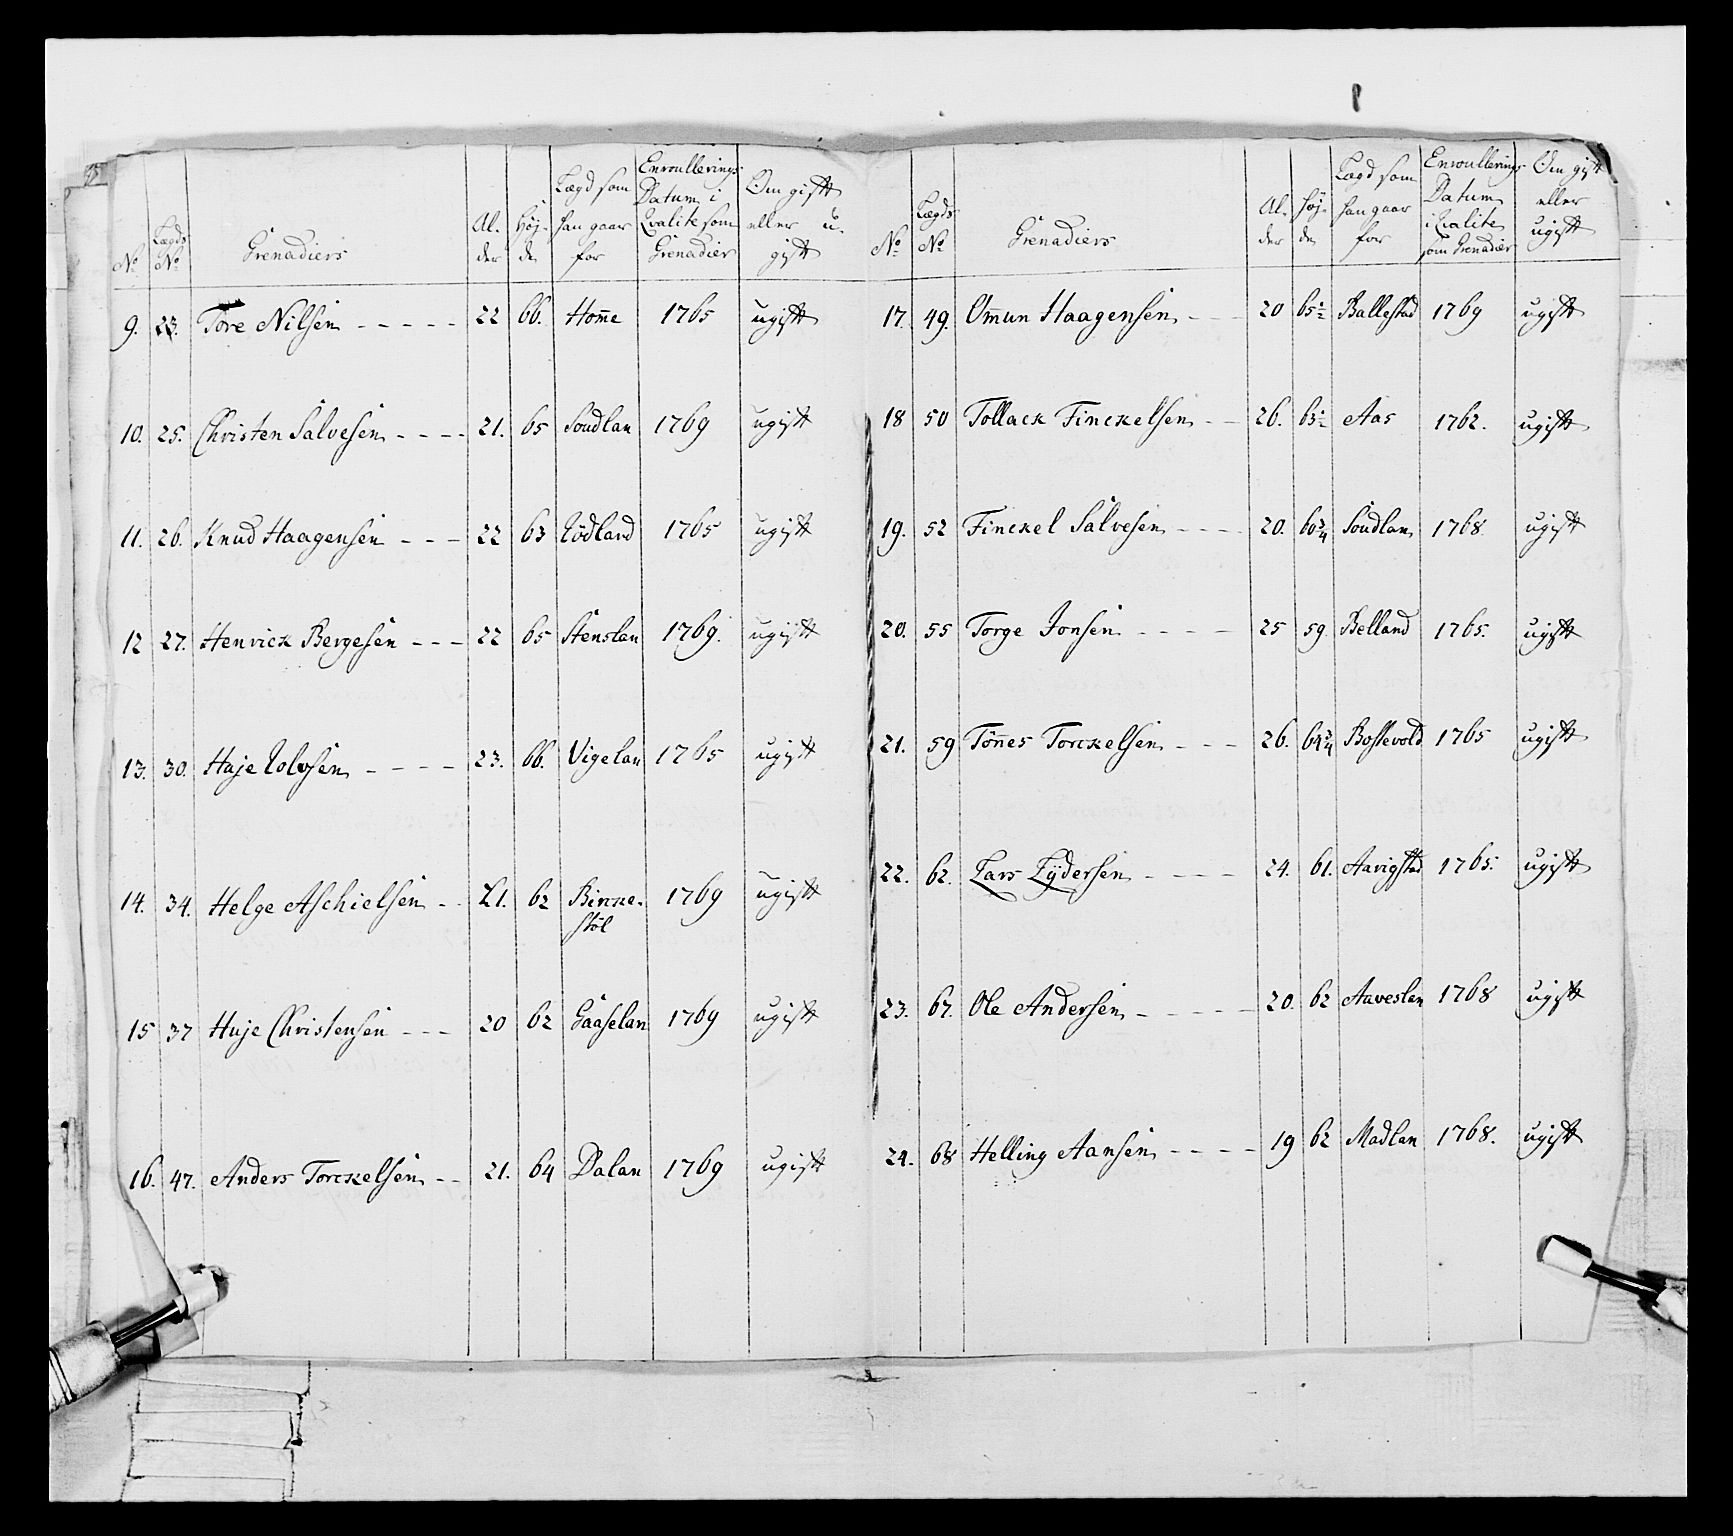 No. Lægds No. Grenadiers Al- der Höj- de Lægd som han gaar for Enroullerings Datum i Qvalite som Grenadier Om gift eller u- gift
9. 23. Tore Nilsen 22 66. Homme 1765 ugift
10. 25. Christen Salvesen 21. 65 Soudlan 1769 ugift
11. 26. Knud Haagensen 22 63 Rödland 1765 ugift
12 27. Henrick Bergesen 22 65 Stenslan 1769. ugift
13. 30. Huje Rolvsen 23. 66. Vigelan 1765 ugift
14. 34. Helge Aschielsen 21. 62 Birke-
stöl 1769 ugift
15 37 Huje Christensen 20 62 Gaaselan 1769 ugift
16. 47. Anders Torckelsen 21. 64 Dalan 1769 ugift
No. Lægds No. Grenadiers Al- der Höj- de Lægd som han gaar for Enroullerings Datum i Qvalite som Grenadier Om gift eller ugift
17. 49. Omun Haagensen 20 65½ Ballestad 1769 ugift
18 50 Tollack Finckelsen 26. 63½ Aas 1762. ugift
19. 52 Finckel Salvesen 20. 60¾ Soudlan 1768 ugift
20. 55 Torge Jonsen 25 59 Belland 1765. ugift
21. 59 Tönnes Torckelsen 26. 64¾ Bossevold 1765 ugift
22. 62. Lars Eÿdersen 24. 61. Aavigstad 1765. ugift
23. 67. Ole Andersen 20. 62 Aaveslan 1768 ugift
24. 68 Helling Aansen 19 62 Madlan 1768. ugift